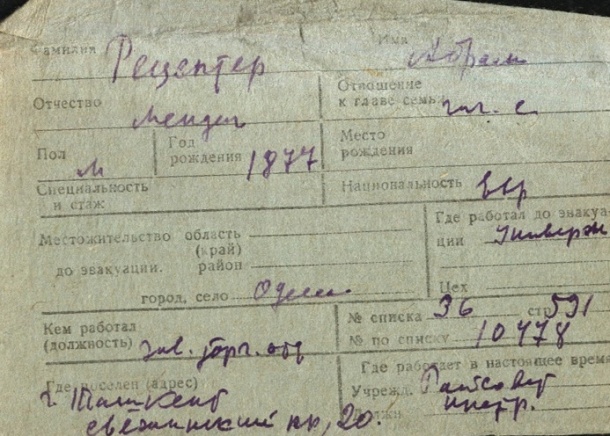 Фамилия Рецептер Имя Абрам
Отчество Мендел Отношение к главе семьи гл. с.
Пол М Год рождения 1877 Место рождения
Специальность и стаж Национальность евр
Местожительство область (край) район до эвакуации.
город, село Одесса
Где работал до эвакуации
Цех
Кем работал (должность) зав. торг. отд
№ списка 36 стр 591
№ по списку 10478
Где поселен (адрес)
г. Ташкент
20.
Где работает в настоящее время
Учрежд. Райсовет
инстр.